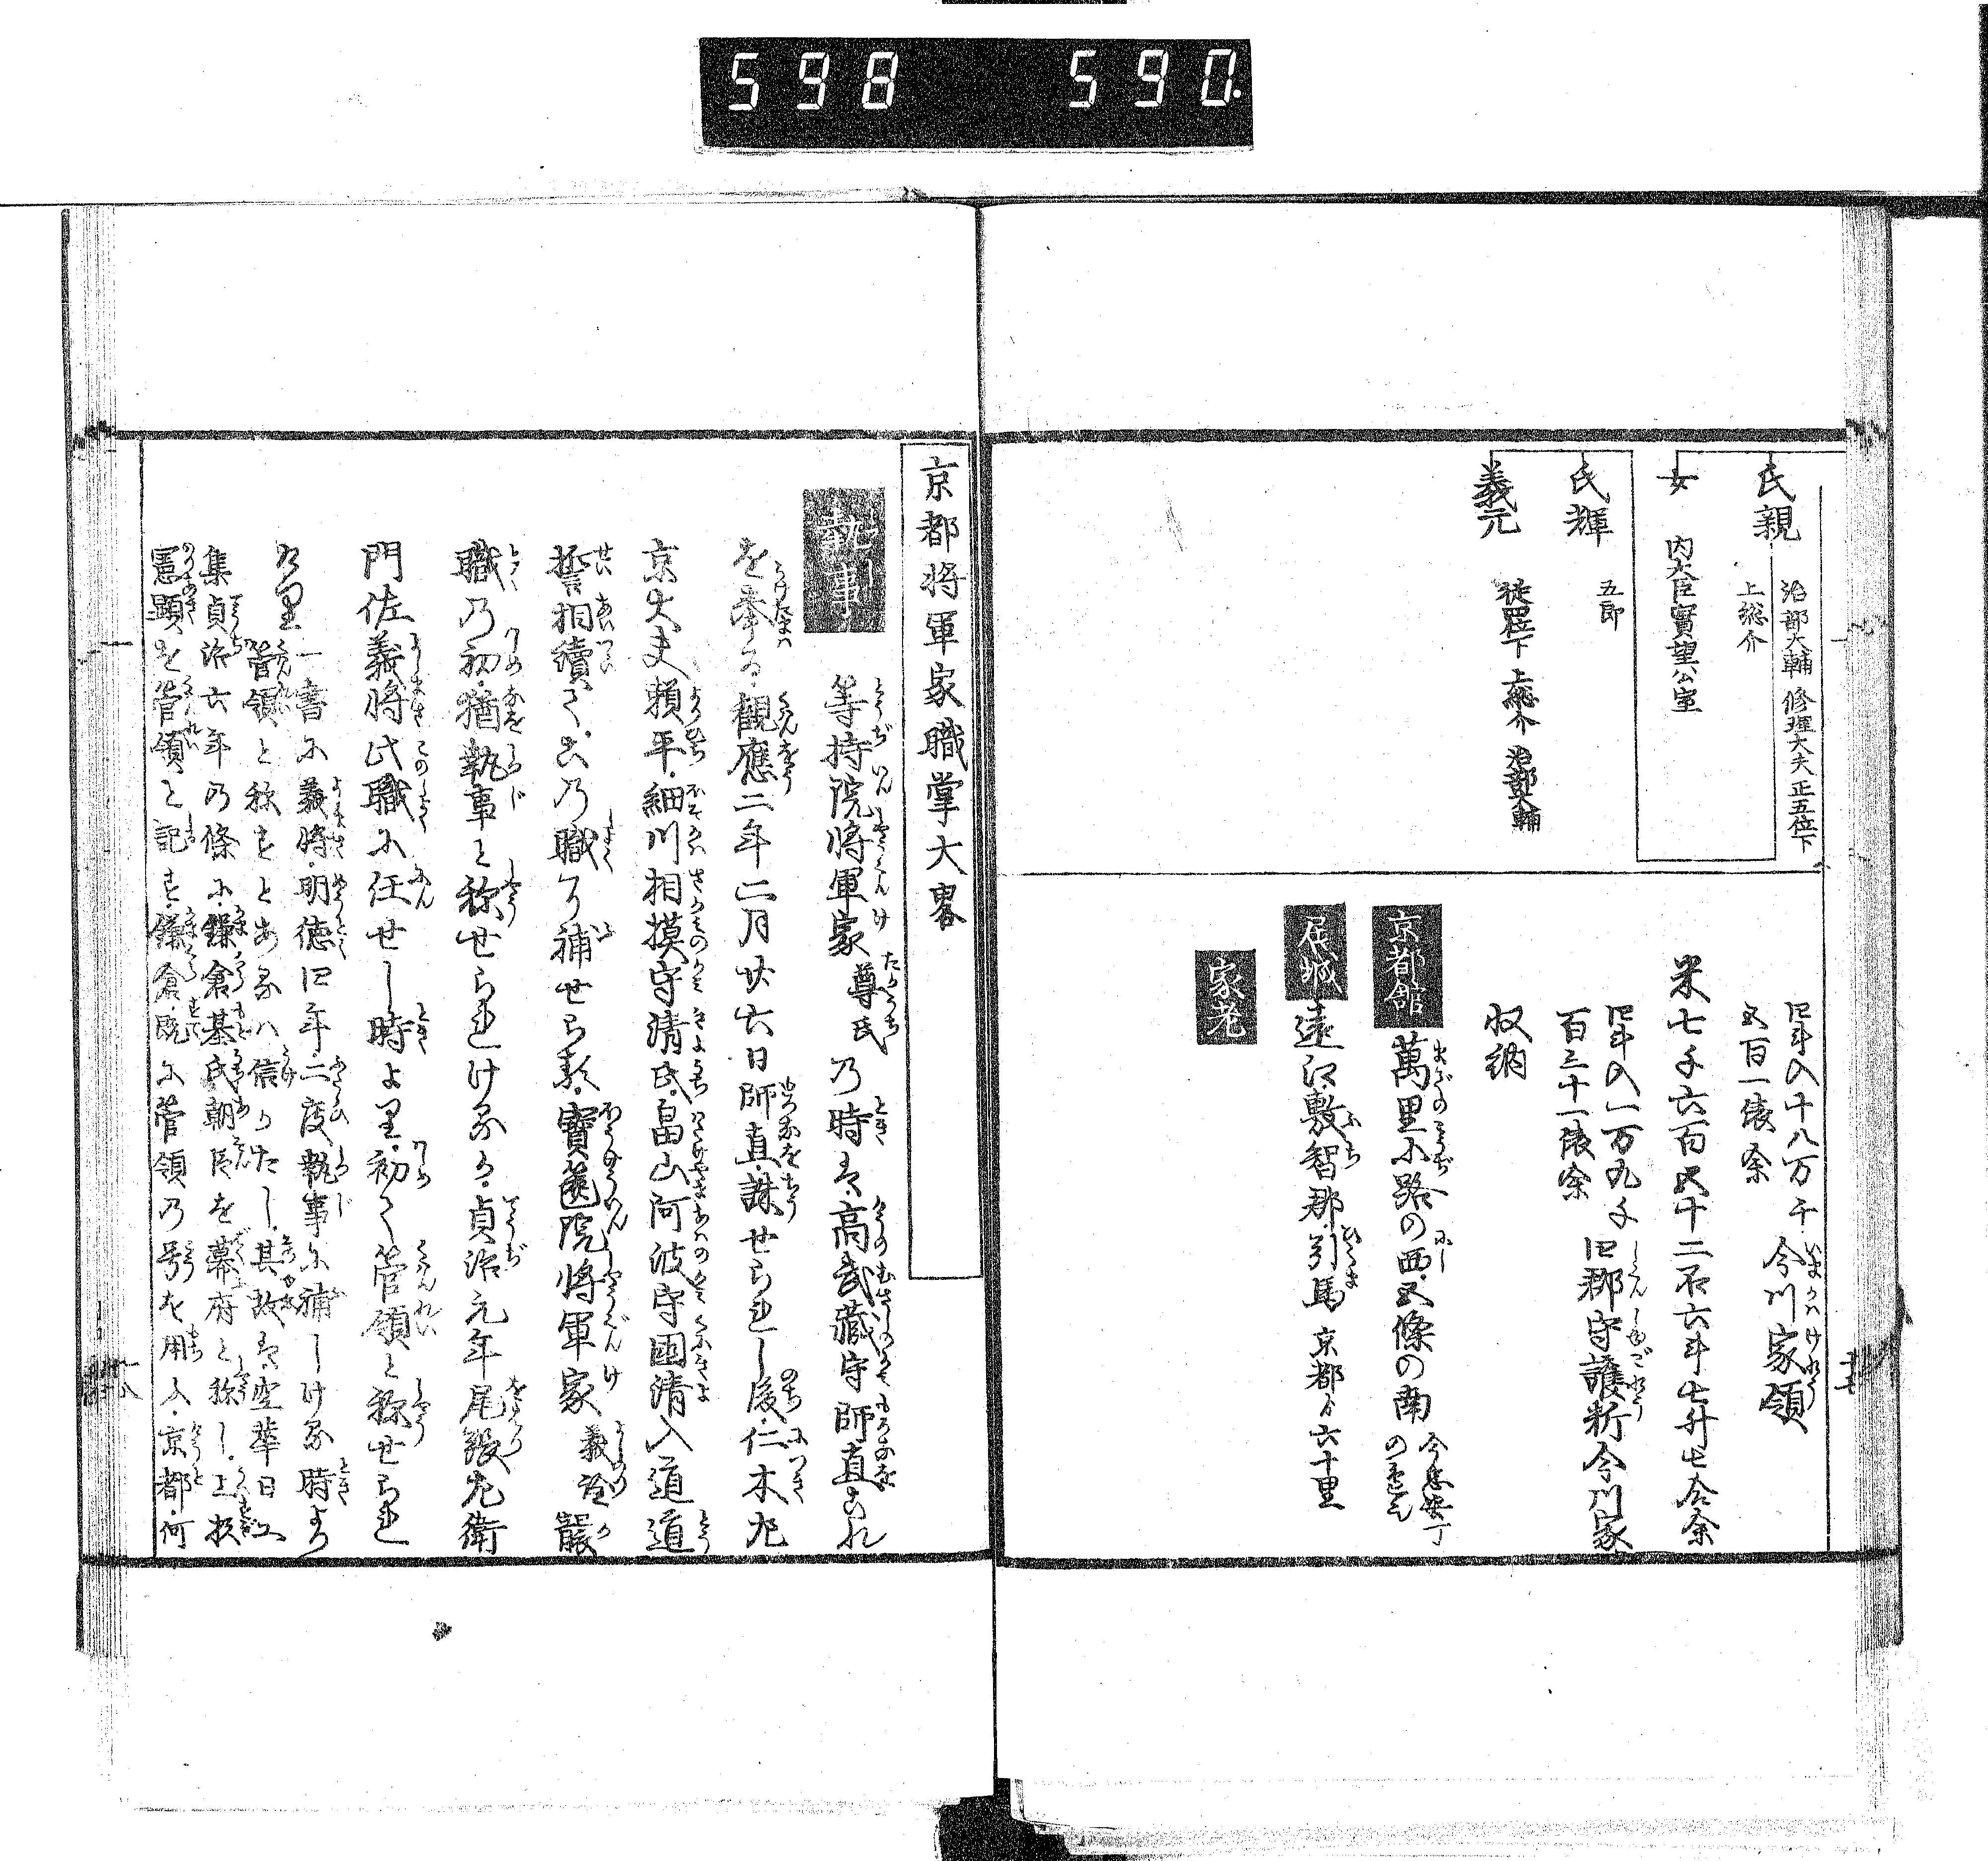 598 590.
氏親 治部大輔 修理大夫 正五位下
上総介
女 内大臣實望公室
氏輝 五郎
義元 従四位下 上総介 治部大輔
四斗入十八万千 今川家領
五百一俵余
米七千六百五十二石六斗七升七合余
四斗入一万九千 四郡守護料今川家
百三十一俵余
収納
京都舘 萬里小路の西五條の南
居城 遠江敷智郡引馬 京都ゟ六十里
家老
京都将軍家職掌大畧
執事 等持院将軍家尊氏乃時は高武蔵守師直これ
を奉る観應二年二月廿六日師直誅せられし後仁木左
京大夫頼平細川相摸守清氏畠山阿波守國清入道道
誓相續て此乃職に補せらる寶篋院将軍家義詮襲
職乃初猶執事と称せられけるが貞治元年尾張左衛
門佐義将此職に任せし時より初て管領と称せられ
たり 一書に義将明徳四年二度執事に補しける時より
管領と称すとあるハ信りたし其故は空華日工
集貞治六年乃條に鎌倉基氏朝臣を幕府と称し上杦
憲顕を管領と記す鎌倉既に管領乃号を用ふ京都何